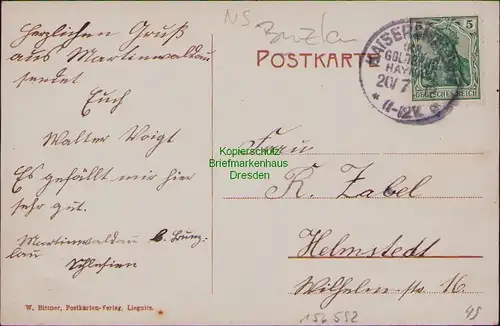 NS
Bunzlau
Herzlichen Gruß
aus Martinwaldau
sendet
Euch
Walter Voigt
Es gefällt mir hier
sehr gut.
Martinwaldau b. Bunz-
lau
Schlesien
W. Bittner, Postkarten-Verlag, Liegnitz.
POSTKARTE
GOLDBERG
HAYNAU
20/7
11-12V.
5
DEUTSCHES REICH
Kopierschutz
Briefmarkenhaus
Dresden
Frau
K. Zabel
Helmstedt
Wilhelm-str. 16.
156592
45